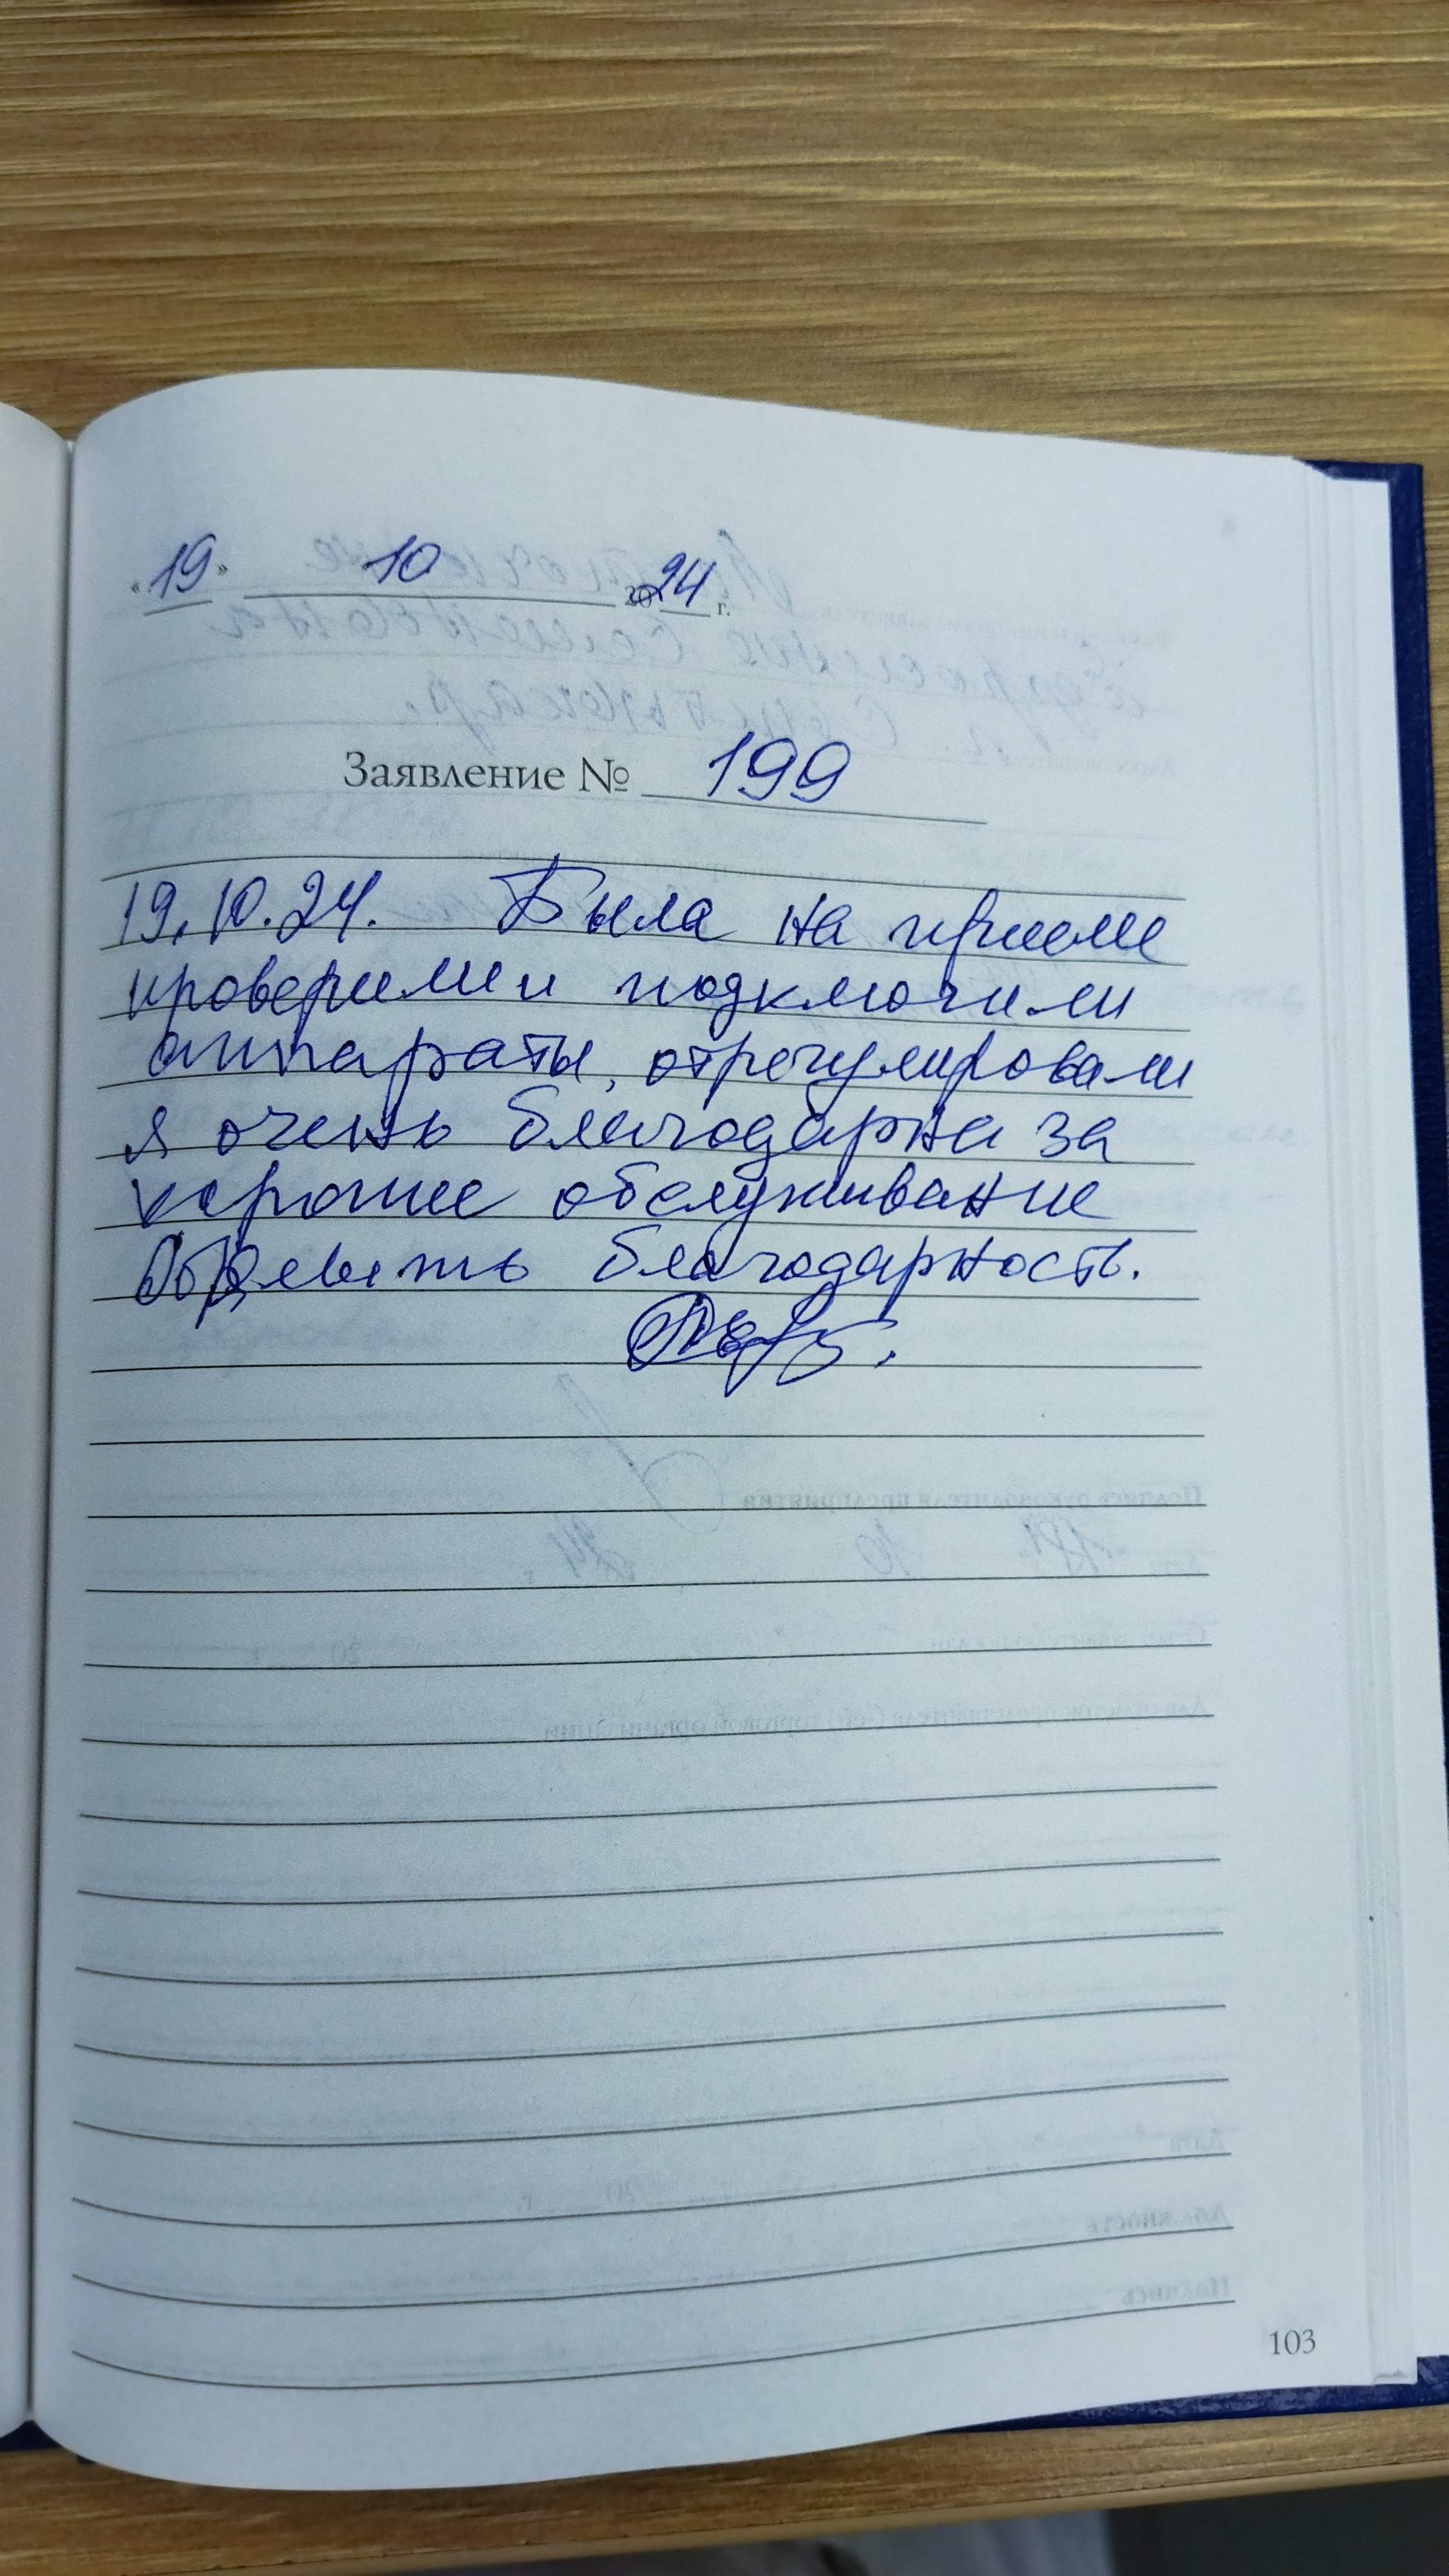 «19» 10 2024 г.
Заявление № 199
19.10.24. Была на приеме
проверили и подключили
аппараты, отрегулировали
я очень благодарна за
хорошее обслуживание
благодарность.
103